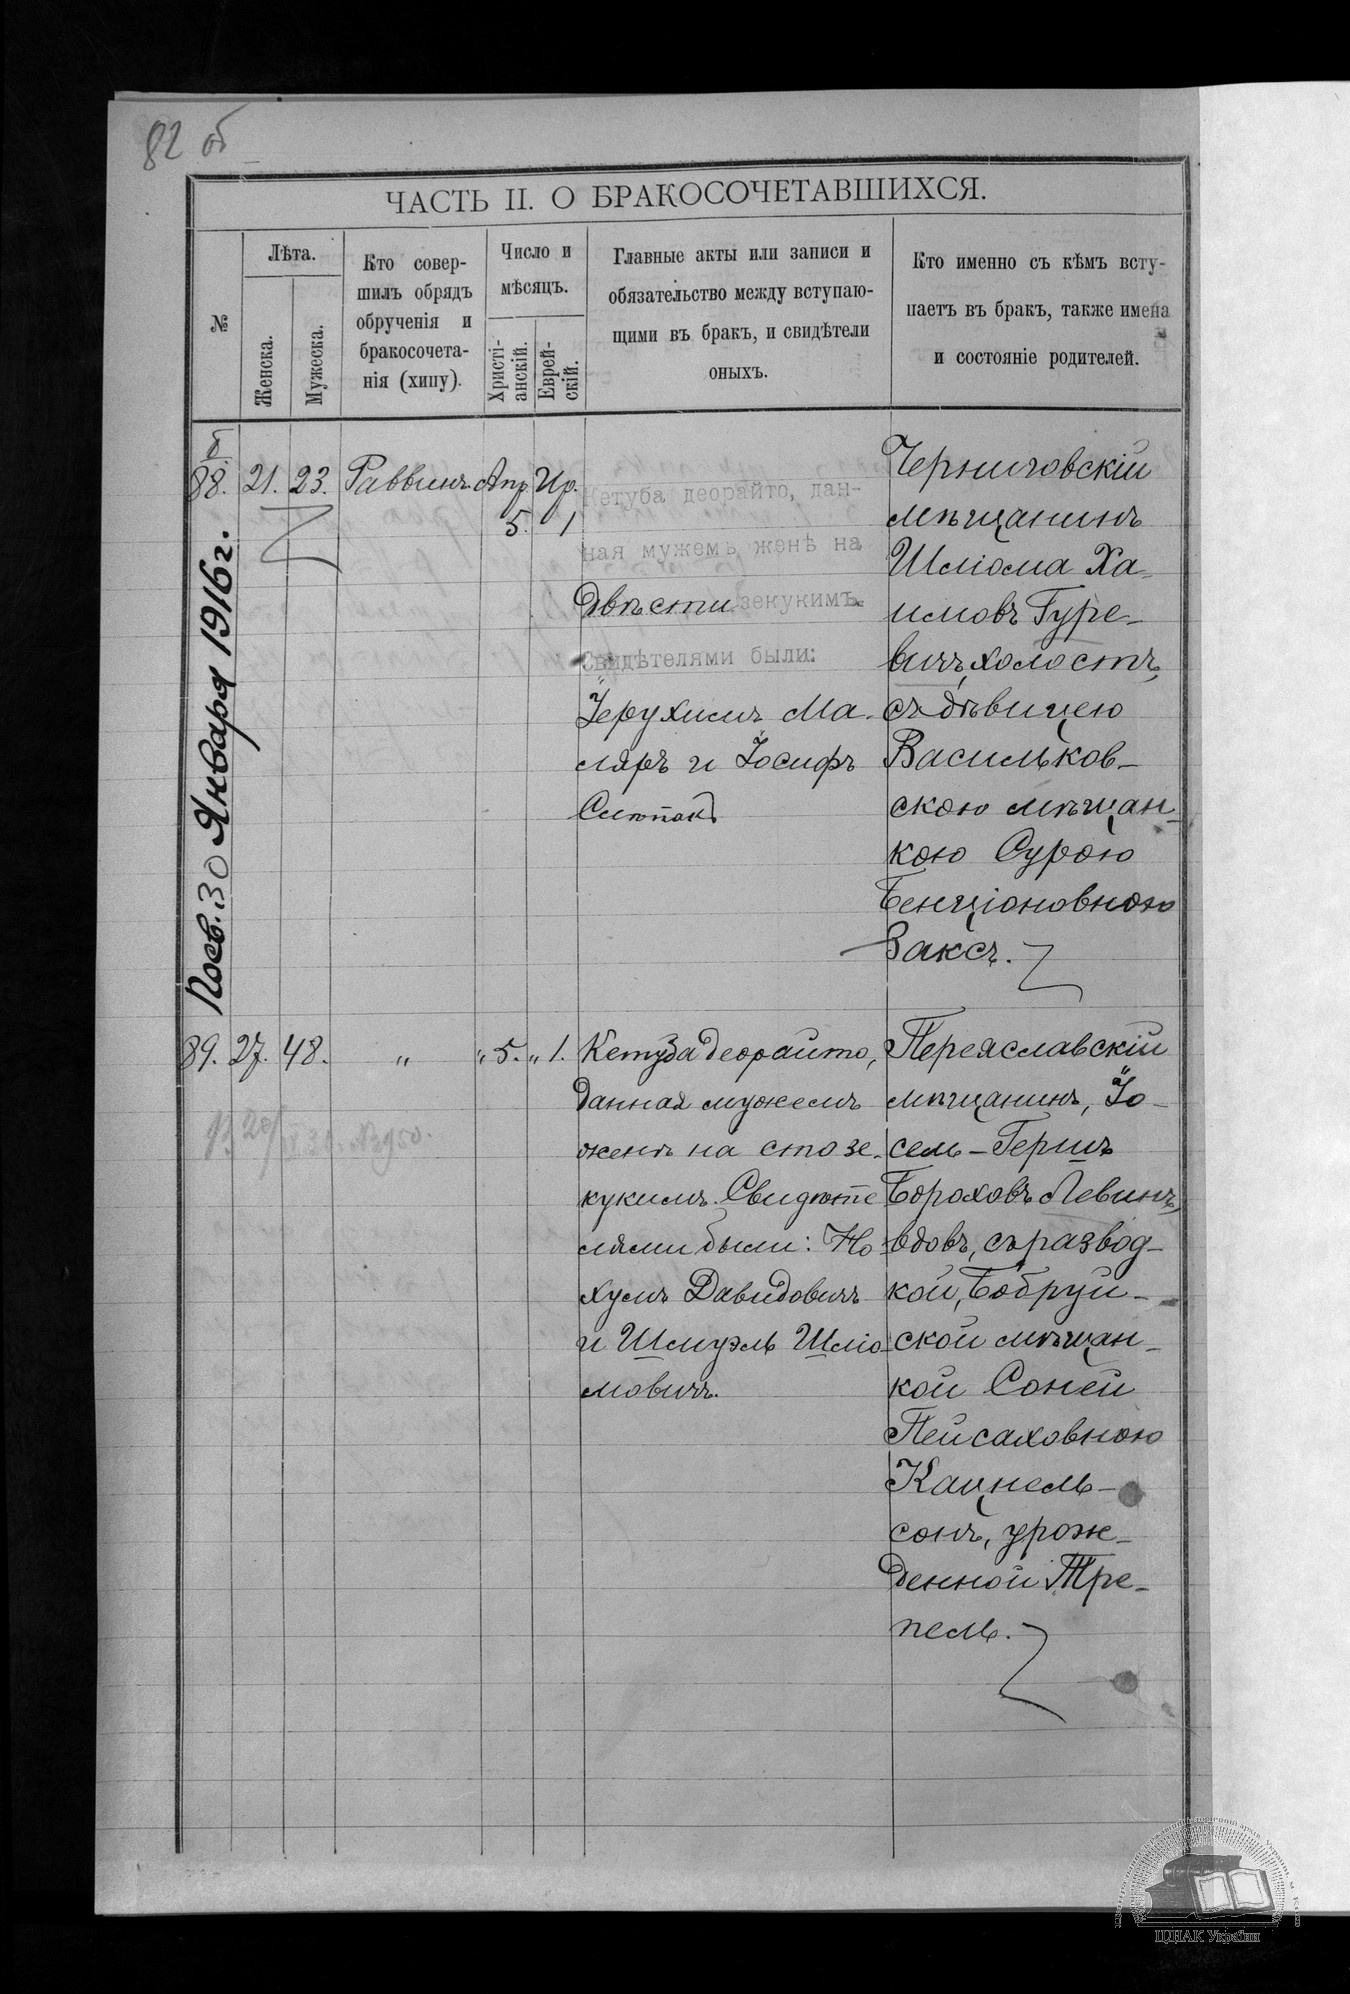 82 об
ЧАСТЬ II. О БРАКОСОЧЕТАВШИХСЯ.
№
Лѣта.
Женска.
Мужеска.
Кто совер-
шилъ обрядъ
обрученія и
бракосочета-
нія (хипу).
Число и
мѣсяцъ.
Христі-
анскій.
Еврей-
скій.
Главные акты или записи и
обязательство между вступаю-
щими въ бракъ, и свидѣтели
оныхъ.
Кто именно съ кѣмъ всту-
паетъ въ бракъ, также имена
и состояніе родителей.
б
88. 21. 23. Раввинъ. Апр. Ир.
5. 1
Кетуба деорайто, дан-
ная мужемъ женѣ на
Двѣсти зекукимъ.
Свидѣтелями были:
Іерухимъ Ма-
ляръ и Іосифъ
Слѣпакъ
Черниговскій
мѣщанинъ
Шліома Ха-
имовъ Гуре-
вичъ, холостъ,
съ дѣвицею
Васильков-
скою мѣщан-
кою Сурою
Бенціоновною
Заксъ.
Посв. 30 Января 1916 г.
89. 27. 48. " " 5. " 1.
Кетуба деорайто,
данная мужемъ
женѣ на сто зе-
кукимъ. Свидѣте
лями были: Но-
хумъ Давидовичъ
и Шмуэль Шліо-
мовичъ.
Переяславскій
мѣщанинъ, Іо-
сель-Гершъ
Бороховъ Левинъ,
вдовъ, съ развод-
кой, Бобруй-
ской мѣщан-
кой Соней
Пейсаховною
Кацнель-
сонъ, урож-
денной Тре-
пель.
ЦДІАК України